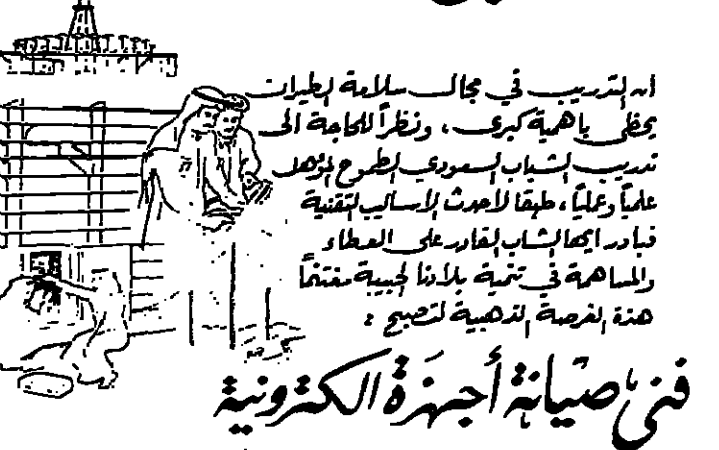 ان التدريب في مجال سلامة الطيران
يحظى باهمية كبرى ، ونظراً للحاجة الى
تدريب الشباب السعودي الطموح المؤهل
علمياً وعملياً ، طبقا لاحدث الاساليب التقنية
فبادر ايها الشاب القادر على العطاء
والمساهمة في تنمية بلادنا الحبيبة مغتنماً
هذة الفرصة الذهبية لتصبح :
فني صيانة أجهزة الكترونية